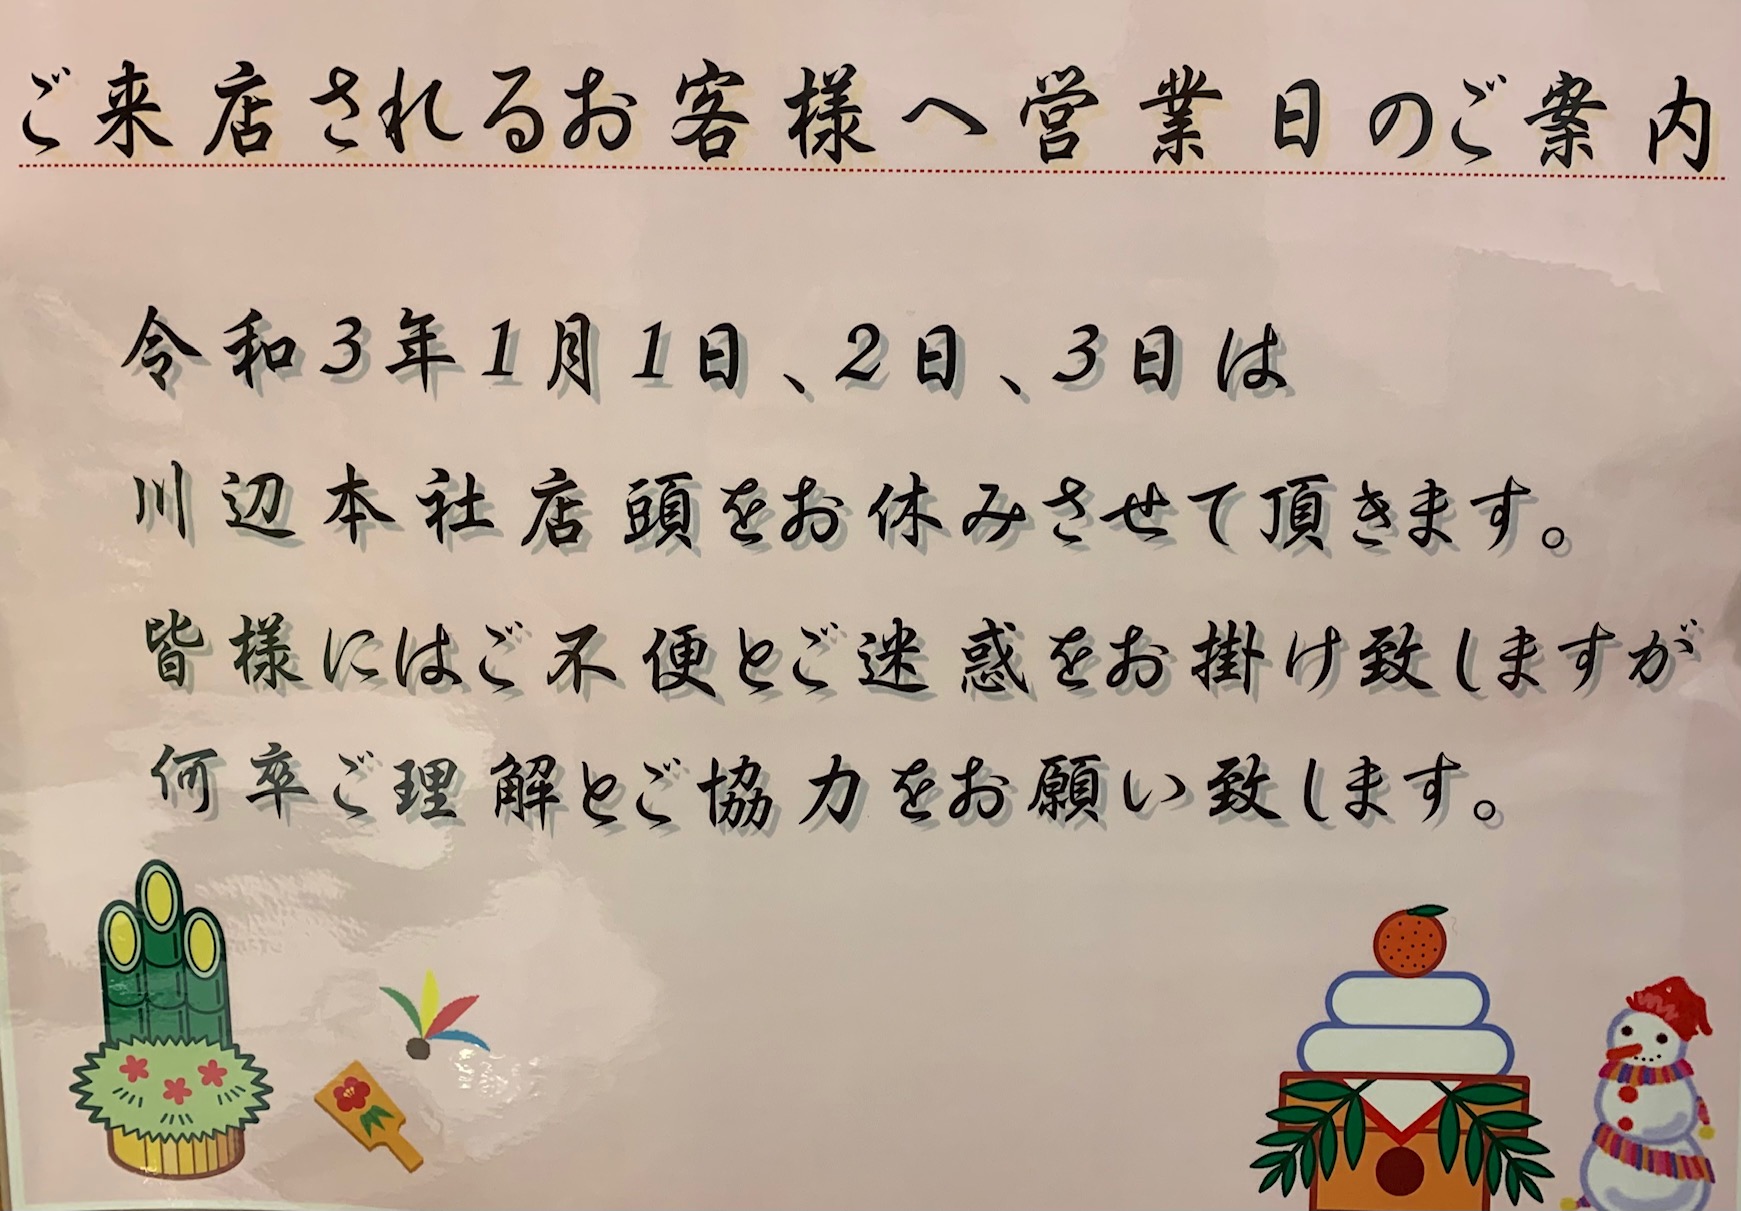 ご来店されるお客様へ営業日のご案内
令和3年1月1日、2日、3日は
川辺本社店頭をお休みさせて頂きます。
皆様にはご不便とご迷惑をお掛け致しますが
何卒ご理解とご協力をお願い致します。